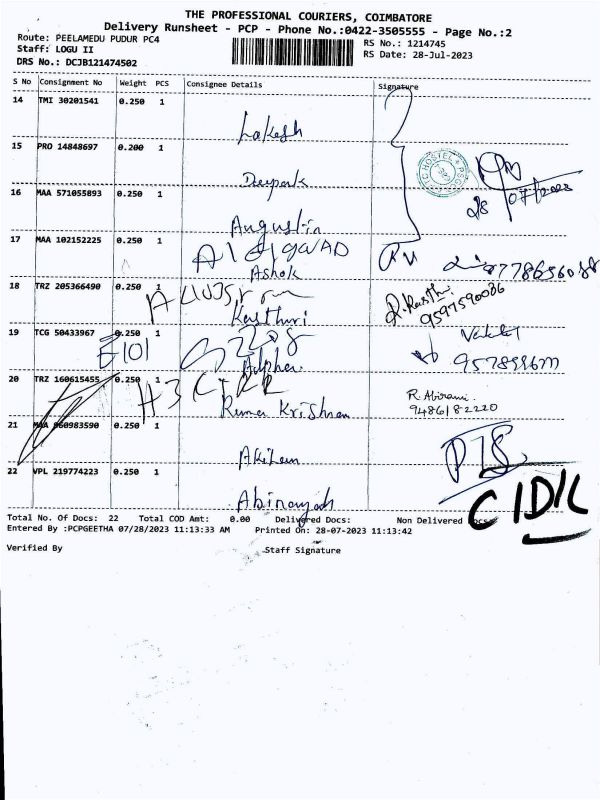 THE PROFESSIONAL COURIERS, COIMBATORE
Delivery Runsheet - PCP - Phone No.:0422-3505555 - Page No.:2
Route: PEELAMEDU PUDUR PC4
RS No.: 1214745
Staff: LOGU II
RS Date: 28-Jul-2023
DRS No.: DCJB121474502
S No Consignment No Weight PCS Consignee Details Signature
14 TMI 30201541 0.250 1
Lokesh
15 PRO 14848697 0.200 1
Deepak
28/07/2023
16 MAA 571055893 0.250 1
Augustin
17 MAA 102152225 0.250 1
Ashok
18 TRZ 205366490 0.250 1
Kasthuri
9597590086
19 TCG 50433967 0.250 1
E101
20 TRZ 160615455 0.250 1
Rama Krishnan
R. Abirami
9486182220
21 MAA 960983590 0.250 1
Akilan
22 VPL 219774223 0.250 1
Total No. Of Docs: 22 Total COD Amt: 0.00 Delivered Docs: Non Delivered Docs:
Entered By :PCPGEETHA 07/28/2023 11:13:33 AM Printed On: 28-07-2023 11:13:42
Verified By Staff Signature